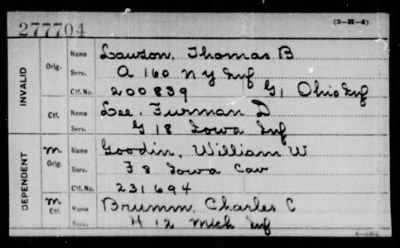 277704
(3-H-4)
INVALID
Orig.
Name Lawson, Thomas B
Serv. A 160 N Y Inf
Ctf. No. 200839 G 1 Ohio Inf
Ctf. Name Lee, Furman D
Serv. G 18 Iowa Inf
DEPENDENT
m Orig.
Name Goodin, William W
Serv. F 8 Iowa Cav
Ctf. No. 231694
m Ctf. Name Brumm, Charles C
Serv. H 12 Mich Inf